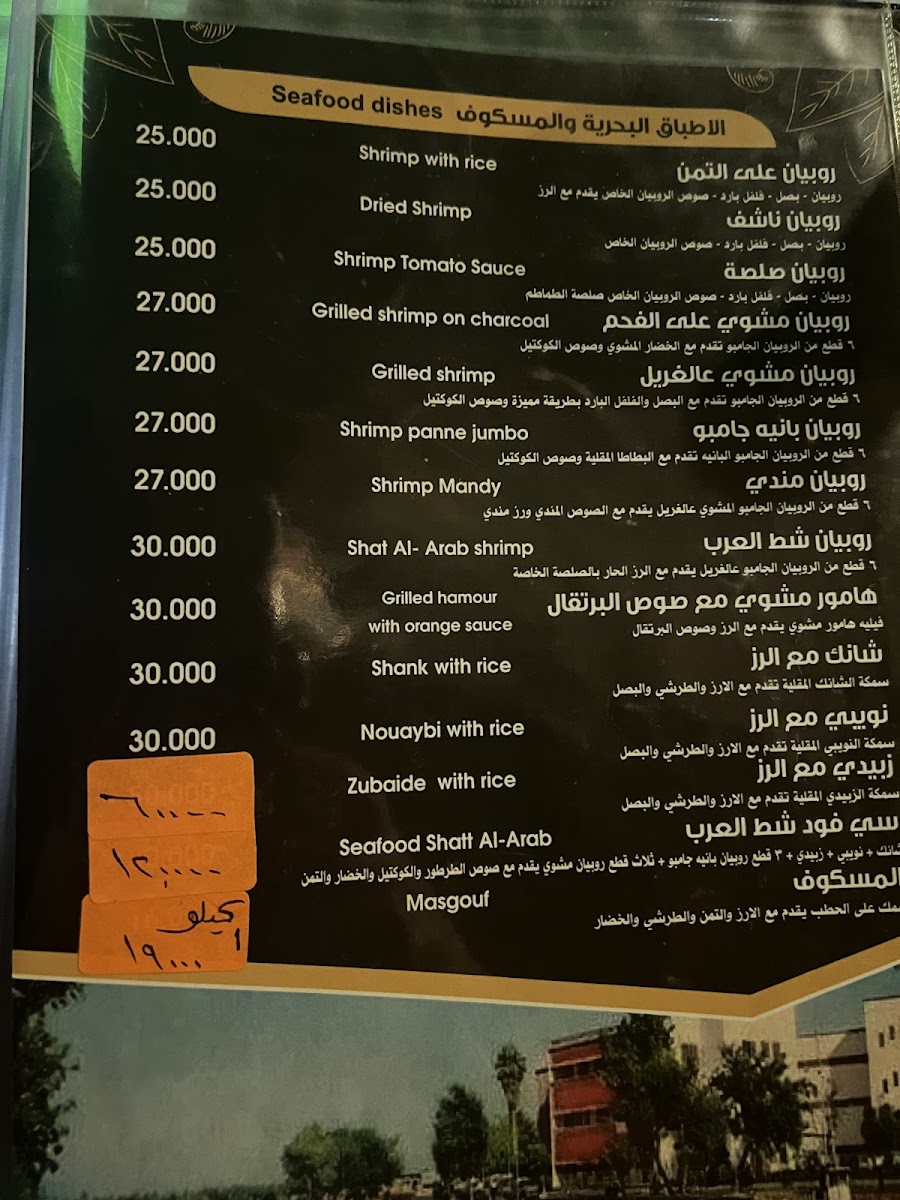 Seafood dishes الاطباق البحرية والمسكوف
25.000 Shrimp with rice روبيان على التمن
روبيان - بصل - فلفل بارد - صوص الروبيان الخاص يقدم مع الرز
25.000 Dried Shrimp روبيان ناشف
روبيان - بصل - فلفل بارد - صوص الروبيان الخاص
25.000 Shrimp Tomato Sauce روبيان صلصة
روبيان - بصل - فلفل بارد - صوص الروبيان الخاص صلصة الطماطم
27.000 Grilled shrimp on charcoal روبيان مشوي على الفحم
٦ قطع من الروبيان الجامبو تقدم مع الخضار المشوي وصوص الكوكتيل
27.000 Grilled shrimp روبيان مشوي عالغريل
٦ قطع من الروبيان الجامبو تقدم مع البصل والفلفل البارد بطريقة مميزة وصوص الكوكتيل
27.000 Shrimp panne jumbo روبيان بانيه جامبو
٦ قطع من الروبيان الجامبو البانيه تقدم مع البطاطا المقلية وصوص الكوكتيل
27.000 Shrimp Mandy روبيان مندي
٦ قطع من الروبيان الجامبو المشوي عالغريل يقدم مع الصوص المندي ورز مندي
30.000 Shat Al- Arab shrimp روبيان شط العرب
٦ قطع من الروبيان الجامبو عالغريل يقدم مع الرز الحار بالصلصة الخاصة
30.000 Grilled hamour هامور مشوي مع صوص البرتقال
with orange sauce فيليه هامور مشوي يقدم مع الرز وصوص البرتقال
30.000 Shank with rice شانك مع الرز
سمكة الشانك المقلية تقدم مع الارز والطرشي والبصل
30.000 Nouaybi with rice نويبي مع الرز
سمكة النويبي المقلية تقدم مع الارز والطرشي والبصل
٦٠,٠٠٠ Zubaide with rice زبيدي مع الرز
سمكة الزبيدي المقلية تقدم مع الارز والطرشي والبصل
١٢٠,٠٠٠ Seafood Shatt Al-Arab سي فود شط العرب
شانك + نويبي + زبيدي + ٣ قطع روبيان بانيه جامبو + ثلاث قطع روبيان مشوي يقدم مع صوص الطرطور والكوكتيل والخضار والتمن
Masgouf المسكوف
على الحطب يقدم مع الارز والتمن والطرشي والخضار
١٩,٠٠٠